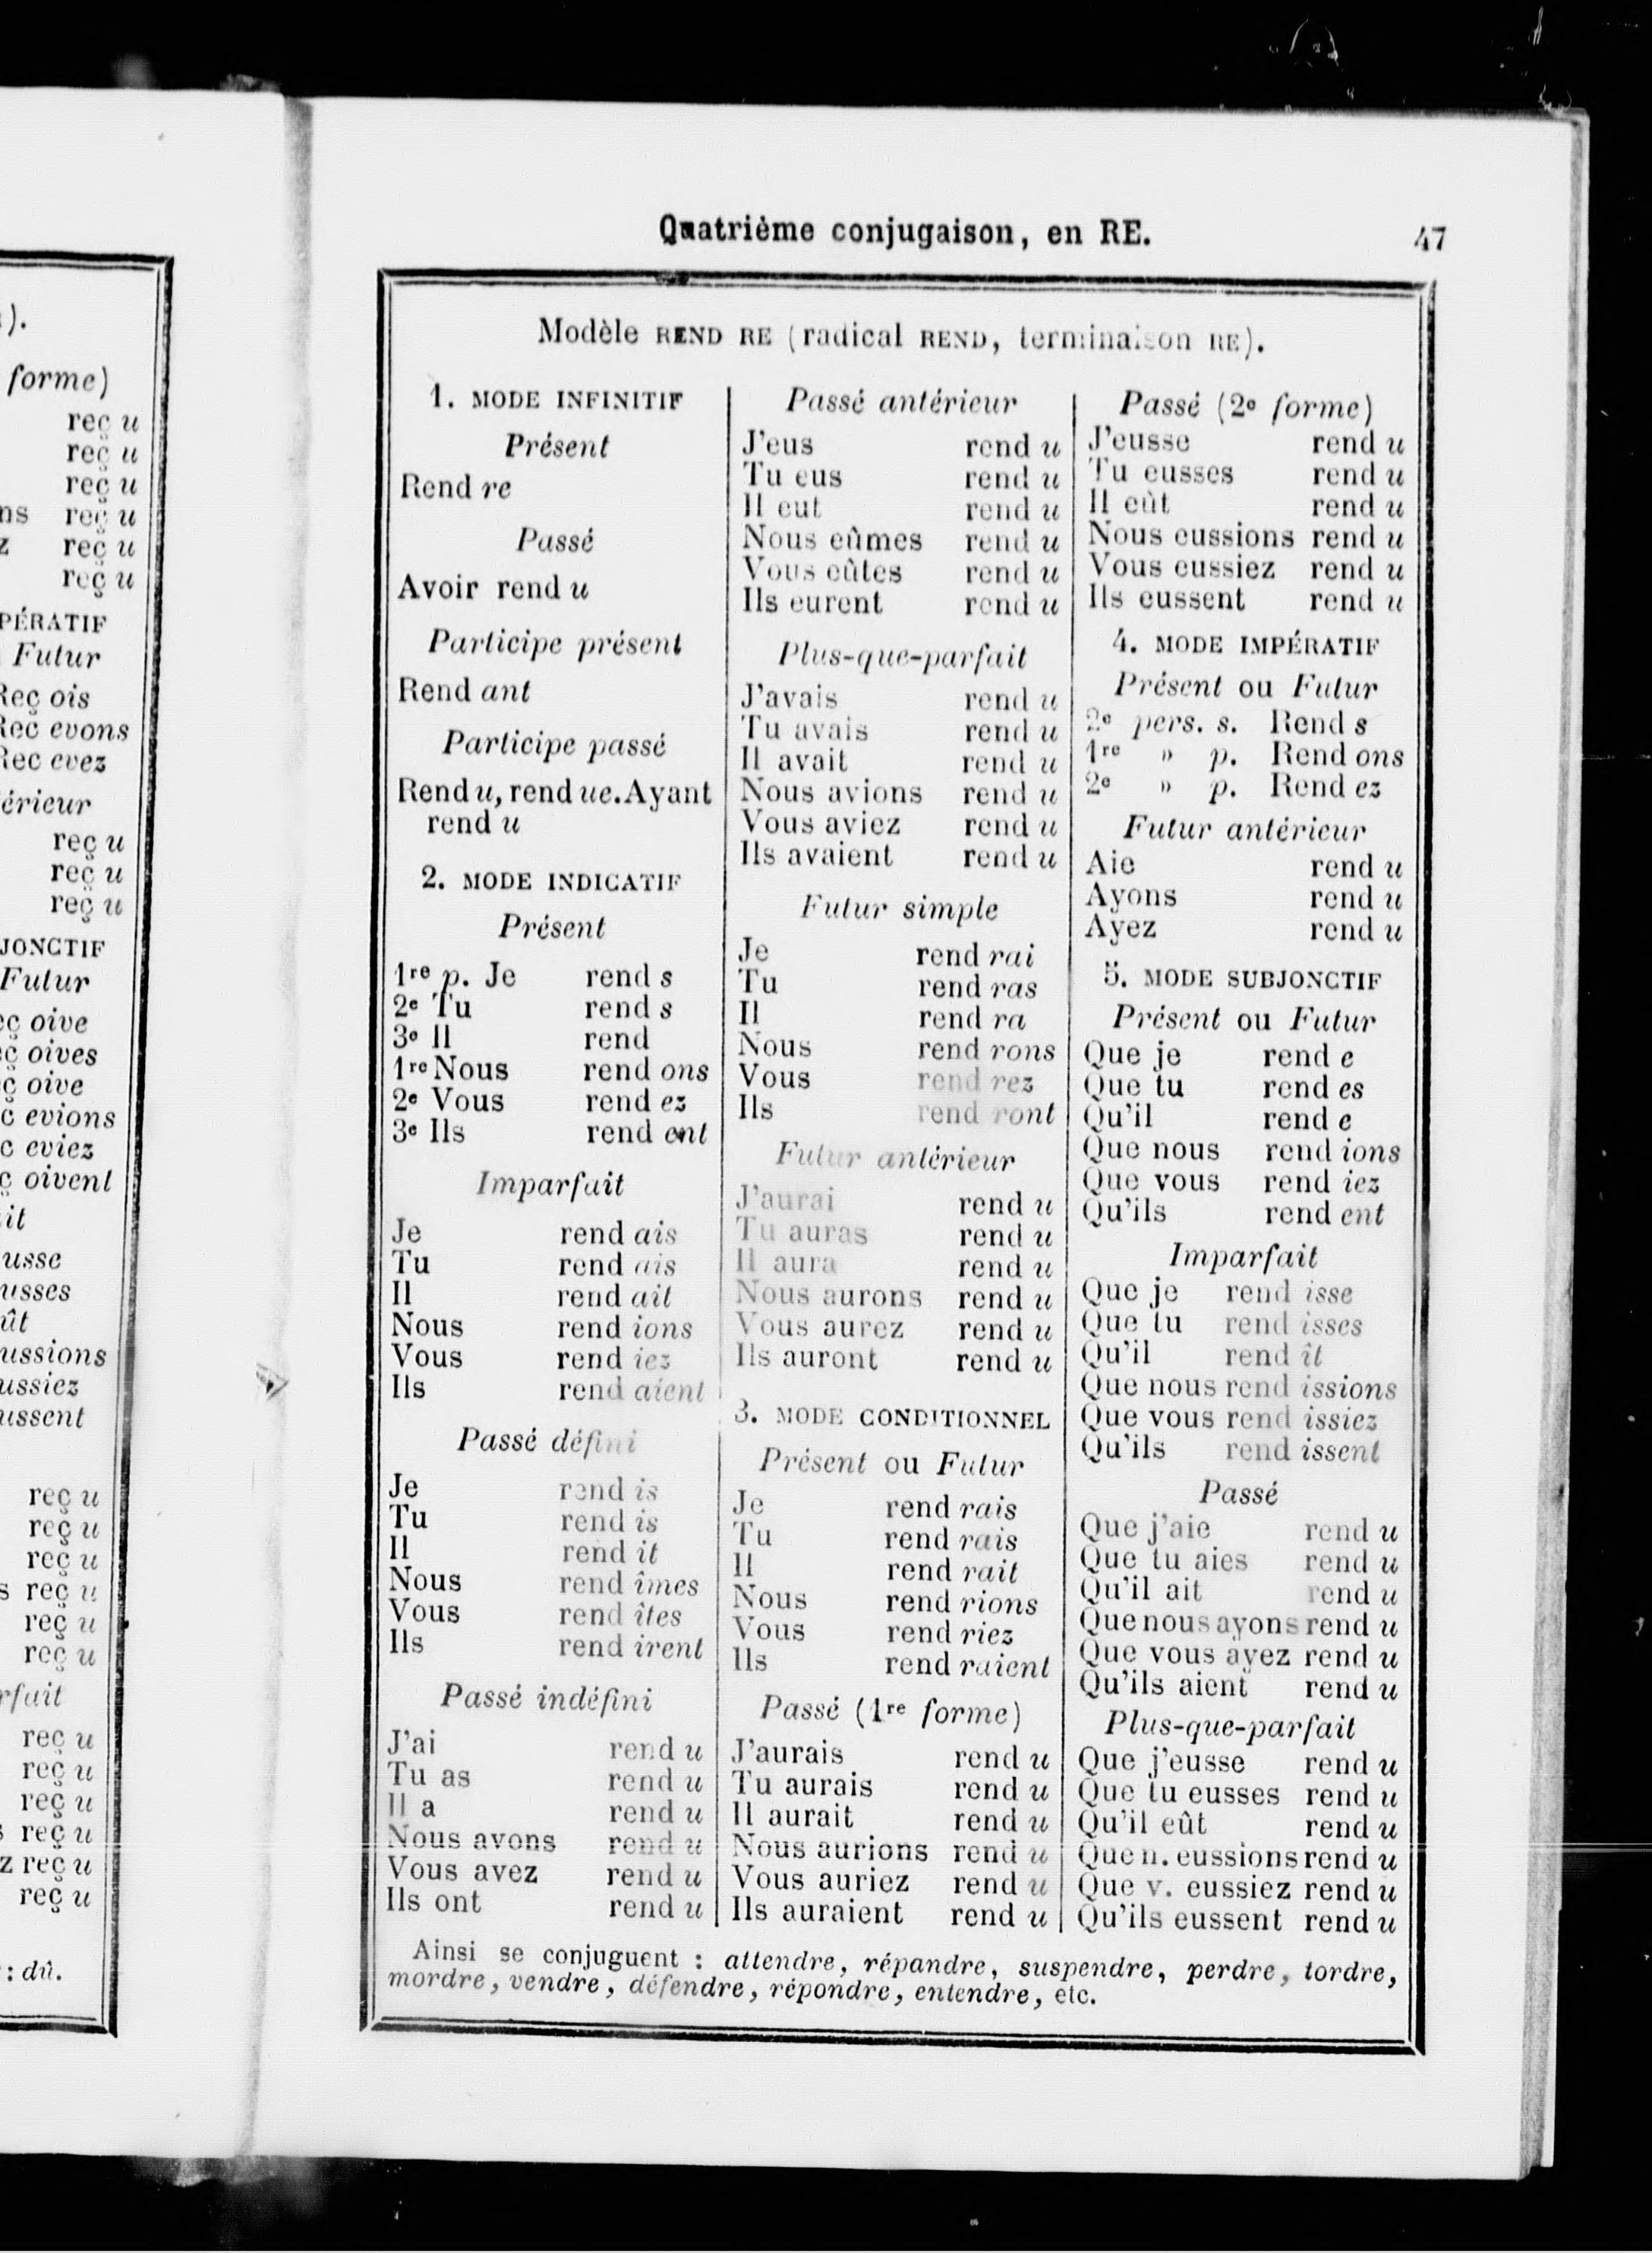 ).
forme)
reç u
reç u
reç u
ns reç u
z reç u
reç u
PÉRATIF
Futur
Reç ois
Rec evons
Rec evez
érieur
reç u
reç u
reç u
JONCTIF
Futur
eç oive
eç oives
ç oive
c evions
c eviez
ç oivent
it
usse
usses
ût
ussions
ussiez
ussent
reç u
reç u
reç u
s reç u
reç u
reç u
rfait
reç u
reç u
reç u
s reç u
z reç u
reç u
: dû.
Quatrième conjugaison, en RE. 47
Modèle REND RE (radical REND, terminaison RE).
1. MODE INFINITIF
Présent
Rend re
Passé
Avoir rend u
Participe présent
Rend ant
Participe passé
Rend u, rend ue. Ayant
rend u
2. MODE INDICATIF
Présent
1re p. Je rend s
2e Tu rend s
3e Il rend
1re Nous rend ons
2e Vous rend ez
3e Ils rend ent
Imparfait
Je rend ais
Tu rend ais
Il rend ait
Nous rend ions
Vous rend iez
Ils rend aient
Passé défini
Je rend is
Tu rend is
Il rend it
Nous rend îmes
Vous rend îtes
Ils rend irent
Passé indéfini
J'ai rend u
Tu as rend u
Il a rend u
Nous avons rend u
Vous avez rend u
Ils ont rend u
Passé antérieur
J'eus rend u
Tu eus rend u
Il eut rend u
Nous eûmes rend u
Vous eûtes rend u
Ils eurent rend u
Plus-que-parfait
J'avais rend u
Tu avais rend u
Il avait rend u
Nous avions rend u
Vous aviez rend u
Ils avaient rend u
Futur simple
Je rend rai
Tu rend ras
Il rend ra
Nous rend rons
Vous rend rez
Ils rend ront
Futur antérieur
J'aurai rend u
Tu auras rend u
Il aura rend u
Nous aurons rend u
Vous aurez rend u
Ils auront rend u
3. MODE CONDITIONNEL
Présent ou Futur
Je rend rais
Tu rend rais
Il rend rait
Nous rend rions
Vous rend riez
Ils rend raient
Passé (1re forme)
J'aurais rend u
Tu aurais rend u
Il aurait rend u
Nous aurions rend u
Vous auriez rend u
Ils auraient rend u
Passé (2e forme)
J'eusse rend u
Tu eusses rend u
Il eût rend u
Nous eussions rend u
Vous eussiez rend u
Ils eussent rend u
4. MODE IMPÉRATIF
Présent ou Futur
2e pers. s. Rend s
1re » p. Rend ons
2e » p. Rend ez
Futur antérieur
Aie rend u
Ayons rend u
Ayez rend u
5. MODE SUBJONCTIF
Présent ou Futur
Que je rend e
Que tu rend es
Qu'il rend e
Que nous rend ions
Que vous rend iez
Qu'ils rend ent
Imparfait
Que je rend isse
Que tu rend isses
Qu'il rend ît
Que nous rend issions
Que vous rend issiez
Qu'ils rend issent
Passé
Que j'aie rend u
Que tu aies rend u
Qu'il ait rend u
Que nous ayons rend u
Que vous ayez rend u
Qu'ils aient rend u
Plus-que-parfait
Que j'eusse rend u
Que tu eusses rend u
Qu'il eût rend u
Que n. eussions rend u
Que v. eussiez rend u
Qu'ils eussent rend u
Ainsi se conjuguent : attendre, répandre, suspendre, perdre, tordre,
mordre, vendre, défendre, répondre, entendre, etc.